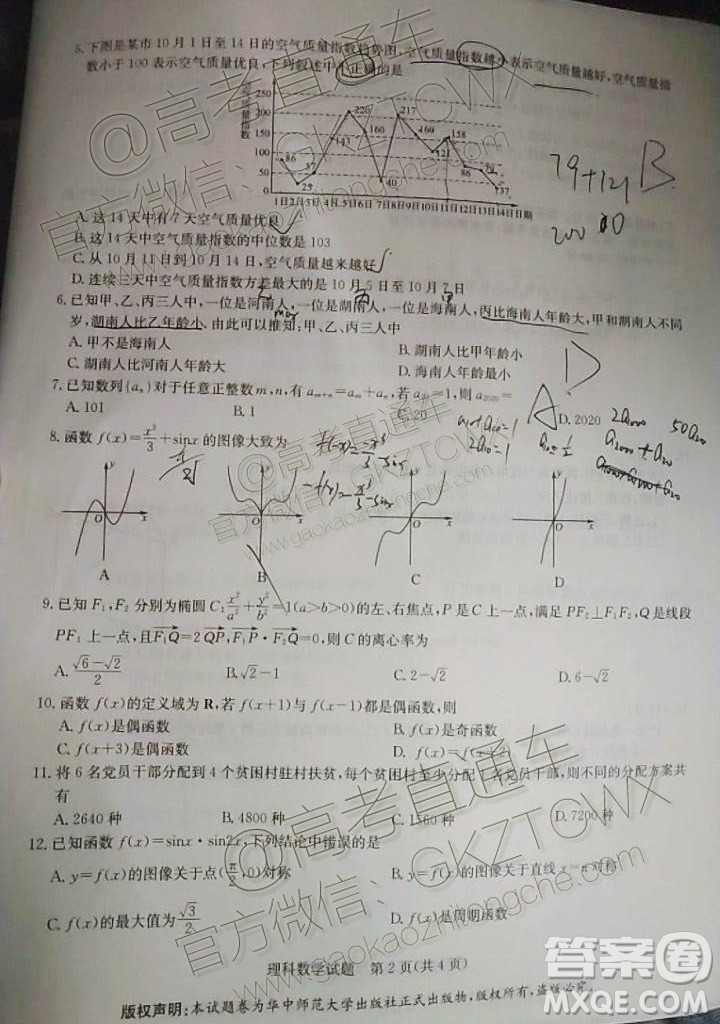 5. 下图是某市 10 月 1 日至 14 日的空气质量指数趋势图,空气质量指数越小表示空气质量越好,空气质量指
数小于 100 表示空气质量优良,下列叙述中不正确的是
空气质量指数
250
200
150
100
50
0
86
25
57
143
220
160
40
217
160
121
158
86
79
37
1日2日3日4日5日6日7日8日9日10日11日12日13日14日日期
79+121
B
200
A. 这 14 天中有 7 天空气质量优良
B. 这 14 天中空气质量指数的中位数是 103
C. 从 10 月 11 日到 10 月 14 日,空气质量越来越好
D. 连续三天中空气质量指数方差最大的是 10 月 5 日至 10 月 7 日
6. 已知甲、乙、丙三人中,一位是河南人,一位是湖南人,一位是海南人,丙比海南人年龄大,甲和湖南人不同
岁,湖南人比乙年龄小. 由此可以推知:甲、乙、丙三人中
A. 甲不是海南人
B. 湖南人比甲年龄小
C. 湖南人比河南人年龄大
D. 海南人年龄最小
D
7. 已知数列{aₙ}对于任意正整数 m,n,有 aₘ₊ₙ=aₘ+aₙ,若 a₂₀=1,则 a₂₀₂₀=
A. 101
B. 1
C. 20
D. 2020
A
8. 函数 f(x)=x³/3+sinx 的图像大致为
y
O
x
A
B
C
D
9. 已知 F₁,F₂ 分别为椭圆 C:x²/a²+y²/b²=1(a>b>0)的左、右焦点,P 是 C 上一点,满足 PF₂⊥F₁F₂,Q 是线段
PF₁ 上一点,且F₁Q=2QP,F₁P·F₂Q=0,则 C 的离心率为
A. (√6−√2)/2
B. √2−1
C. 2−√2
D. 6−√2
10. 函数 f(x)的定义域为 R,若 f(x+1)与 f(x−1)都是偶函数,则
A. f(x)是偶函数
B. f(x)是奇函数
C. f(x+3)是偶函数
D. f(x)=f(x+2)
11. 将 6 名党员干部分配到 4 个贫困村驻村扶贫,每个贫困村至少分配 1 名党员干部,则不同的分配方案共
有
A. 2640 种
B. 4800 种
C. 1560 种
D. 7200 种
12. 已知函数 f(x)=sinx·sin2x,下列结论中错误的是
A. y=f(x)的图像关于点(π/2,0)对称
B. y=f(x)的图像关于直线 x=π 对称
C. f(x)的最大值为√3/2
D. f(x)是周期函数
理科数学试题 第 2 页(共 4 页)
版权声明:本试题卷为华中师范大学出版社正式出版物,版权所有,盗版必究。
@高考直通车
官方微信:GKZTCWX
www.gaokaozhitongche.com
@高考直通车
官方微信:GKZTCWX
www.gaokaozhitongche.com
@高考直通车
官方微信:GKZTCWX
www.gaokaozhitongche.com
答案圈
MXQE.COM